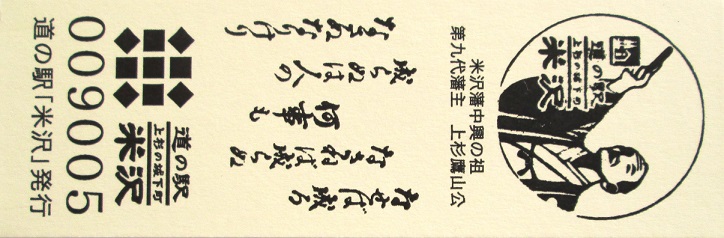 道の駅
上杉の城下町
米沢
米沢藩中興の祖
第九代藩主　上杉鷹山公
なせば成る
なさねば成らぬ
何事も
成らぬは人の
なさぬなりけり
道の駅
上杉の城下町
米沢
009005
道の駅「米沢」発行